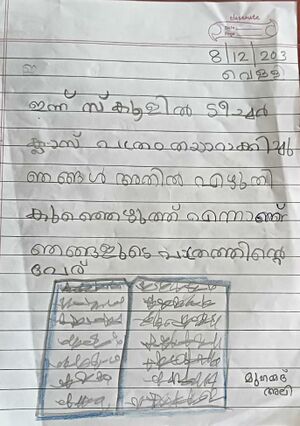 classmate
Date
Page
8/12/203
വെള്ളി
ഇന്ന് സ്കൂളിൽ ടീച്ചർ
ക്ലാസ് പത്രം തയാറാക്കിച്ചു
ഞങ്ങൾ അതിൽ എഴുതി
കുഞ്ഞെഴുത്ത് എന്നാണ്
ഞങ്ങളുടെ പത്രത്തിന്റെ
പേര്
മുഹമ്മദ്
അലി